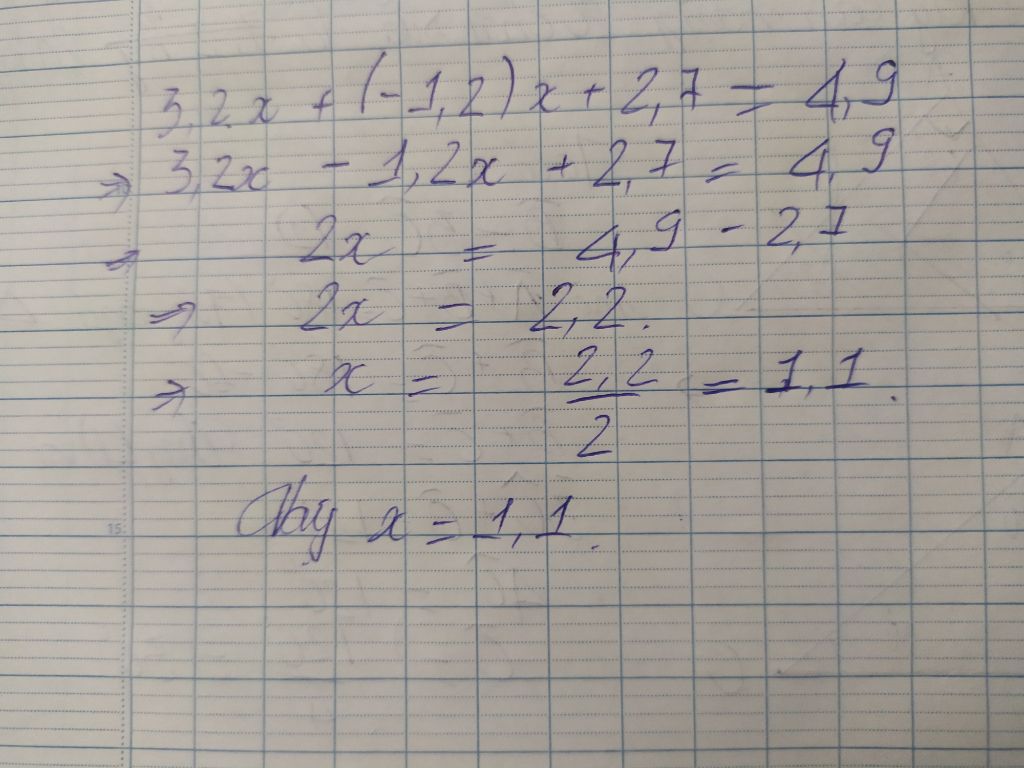 3,2x + (-1,2)x + 2,7 = 4,9
⇒ 3,2x - 1,2x + 2,7 = 4,9
⇒ 2x = 4,9 - 2,7
⇒ 2x = 2,2.
⇒ x = 2,2/2 = 1,1.
Vậy x = 1,1.